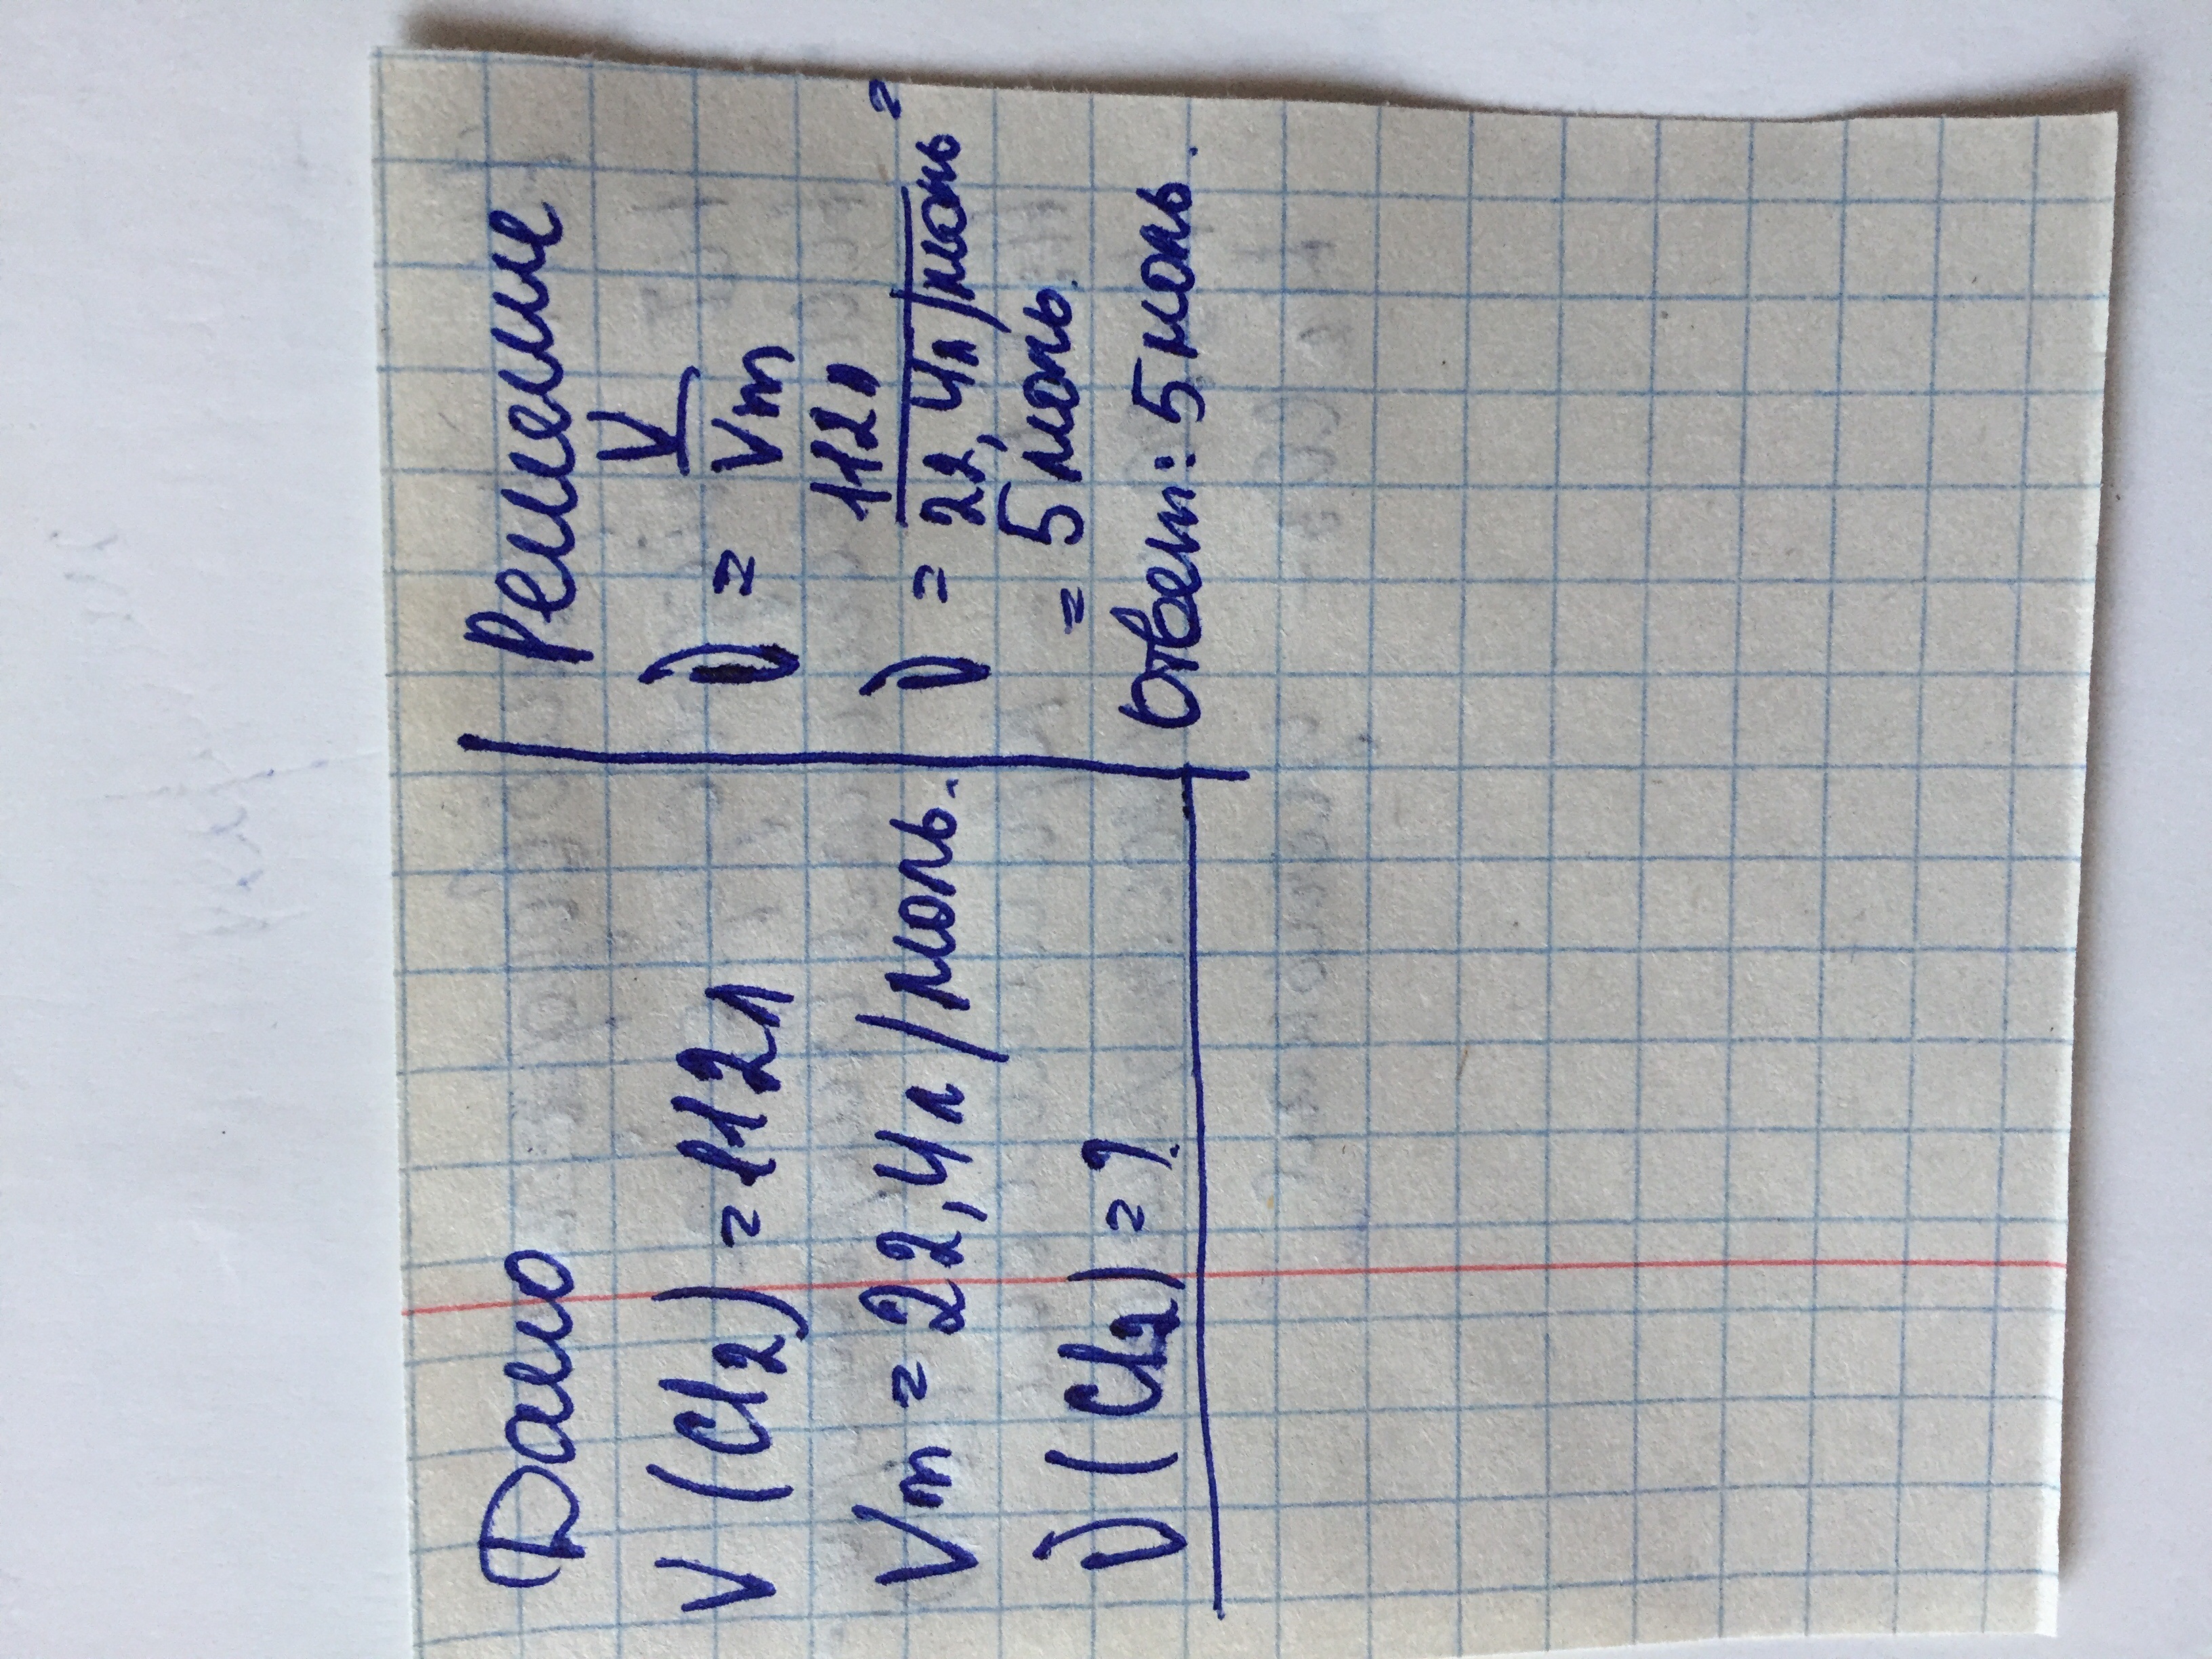 Дано
V (Cl₂) = 112л
Vm = 22,4л/моль.
ν (Cl₂) = ?
Решение
ν = V/Vm
ν = 112л/22,4л/моль =
= 5 моль.
Ответ: 5 моль.